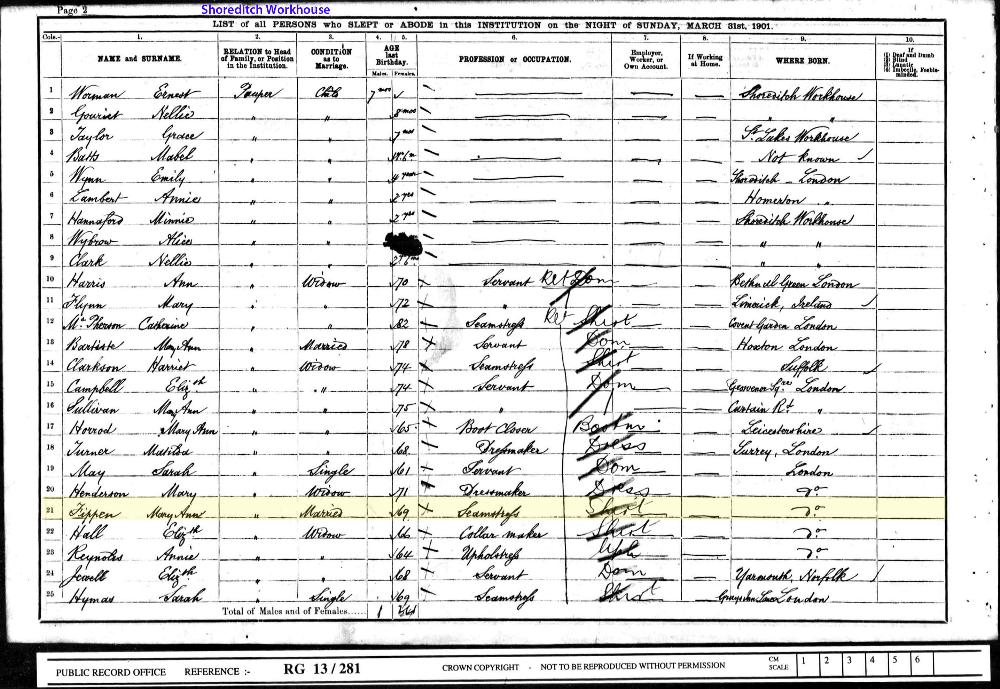 Page 2
Shoreditch Workhouse
LIST of all PERSONS who SLEPT or ABODE in this INSTITUTION on the NIGHT of SUNDAY, MARCH 31st, 1901.
Cols.— 1. 2. 3. 4. 5. 6. 7. 8. 9. 10.
NAME and SURNAME. RELATION to Head of Family, or Position in the Institution. CONDITION as to Marriage. AGE last Birthday. Males. Females. PROFESSION or OCCUPATION. Employer, Worker, or Own Account. If Working at Home. WHERE BORN. If (1) Deaf and Dumb (2) Blind (3) Lunatic (4) Imbecile, Feeble-minded.
1 Worman Ernest Pauper 7 mos Shoreditch Workhouse
2 Nellie " " 8 mos " "
3 Taylor Grace " " 7 mos St. Lukes Workhouse
4 Batts Mabel " " Not known
5 Wynn Emily " " Shoreditch - London
6 Lambert Annie " " 2 yrs Homerton "
7 Hannaford Minnie " " 2 yrs Shoreditch Workhouse
8 Wybrow Alice " " " "
9 Clark Nellie " " " "
10 Harris Ann " Widow 70 Servant Ret Dom Bethnal Green London
11 Flynn Mary " " 72 " Limerick, Ireland
12 McPherson Catherine " " 82 Seamstress Ret Shirt Covent Garden London
13 Mary Ann " Married 78 Servant Dom Hoxton London
14 Clarkson Harriet " Widow 74 Seamstress Shirt Suffolk
15 Campbell Elizth " " 74 Servant Dom Grosvenor Sqre London
16 Sullivan Mary Ann " " 75 " Curtain Rd "
17 Horrod Mary Ann " " 65 Boot Closer Leicestershire
18 Turner Matilda " " 68 Dressmaker Dress Surrey, London
19 May Sarah " Single 61 Servant Dom London
20 Henderson Mary " Widow 71 Dressmaker Dress Do
21 Tippen Mary Ann " Married 69 Seamstress Shirt Do
22 Hall Elizth " Widow 66 Collar maker Shirt Do
23 Reynolds Annie " " 64 Upholstress Uph Do
24 Jewell Elizth " " 68 Servant Dom Yarmouth, Norfolk
25 Hymas Sarah " Single 69 Seamstress Shirt London
Total of Males and of Females...... 1
PUBLIC RECORD OFFICE REFERENCE :- RG 13/281 CROWN COPYRIGHT - NOT TO BE REPRODUCED WITHOUT PERMISSION CM SCALE 1 2 3 4 5 6